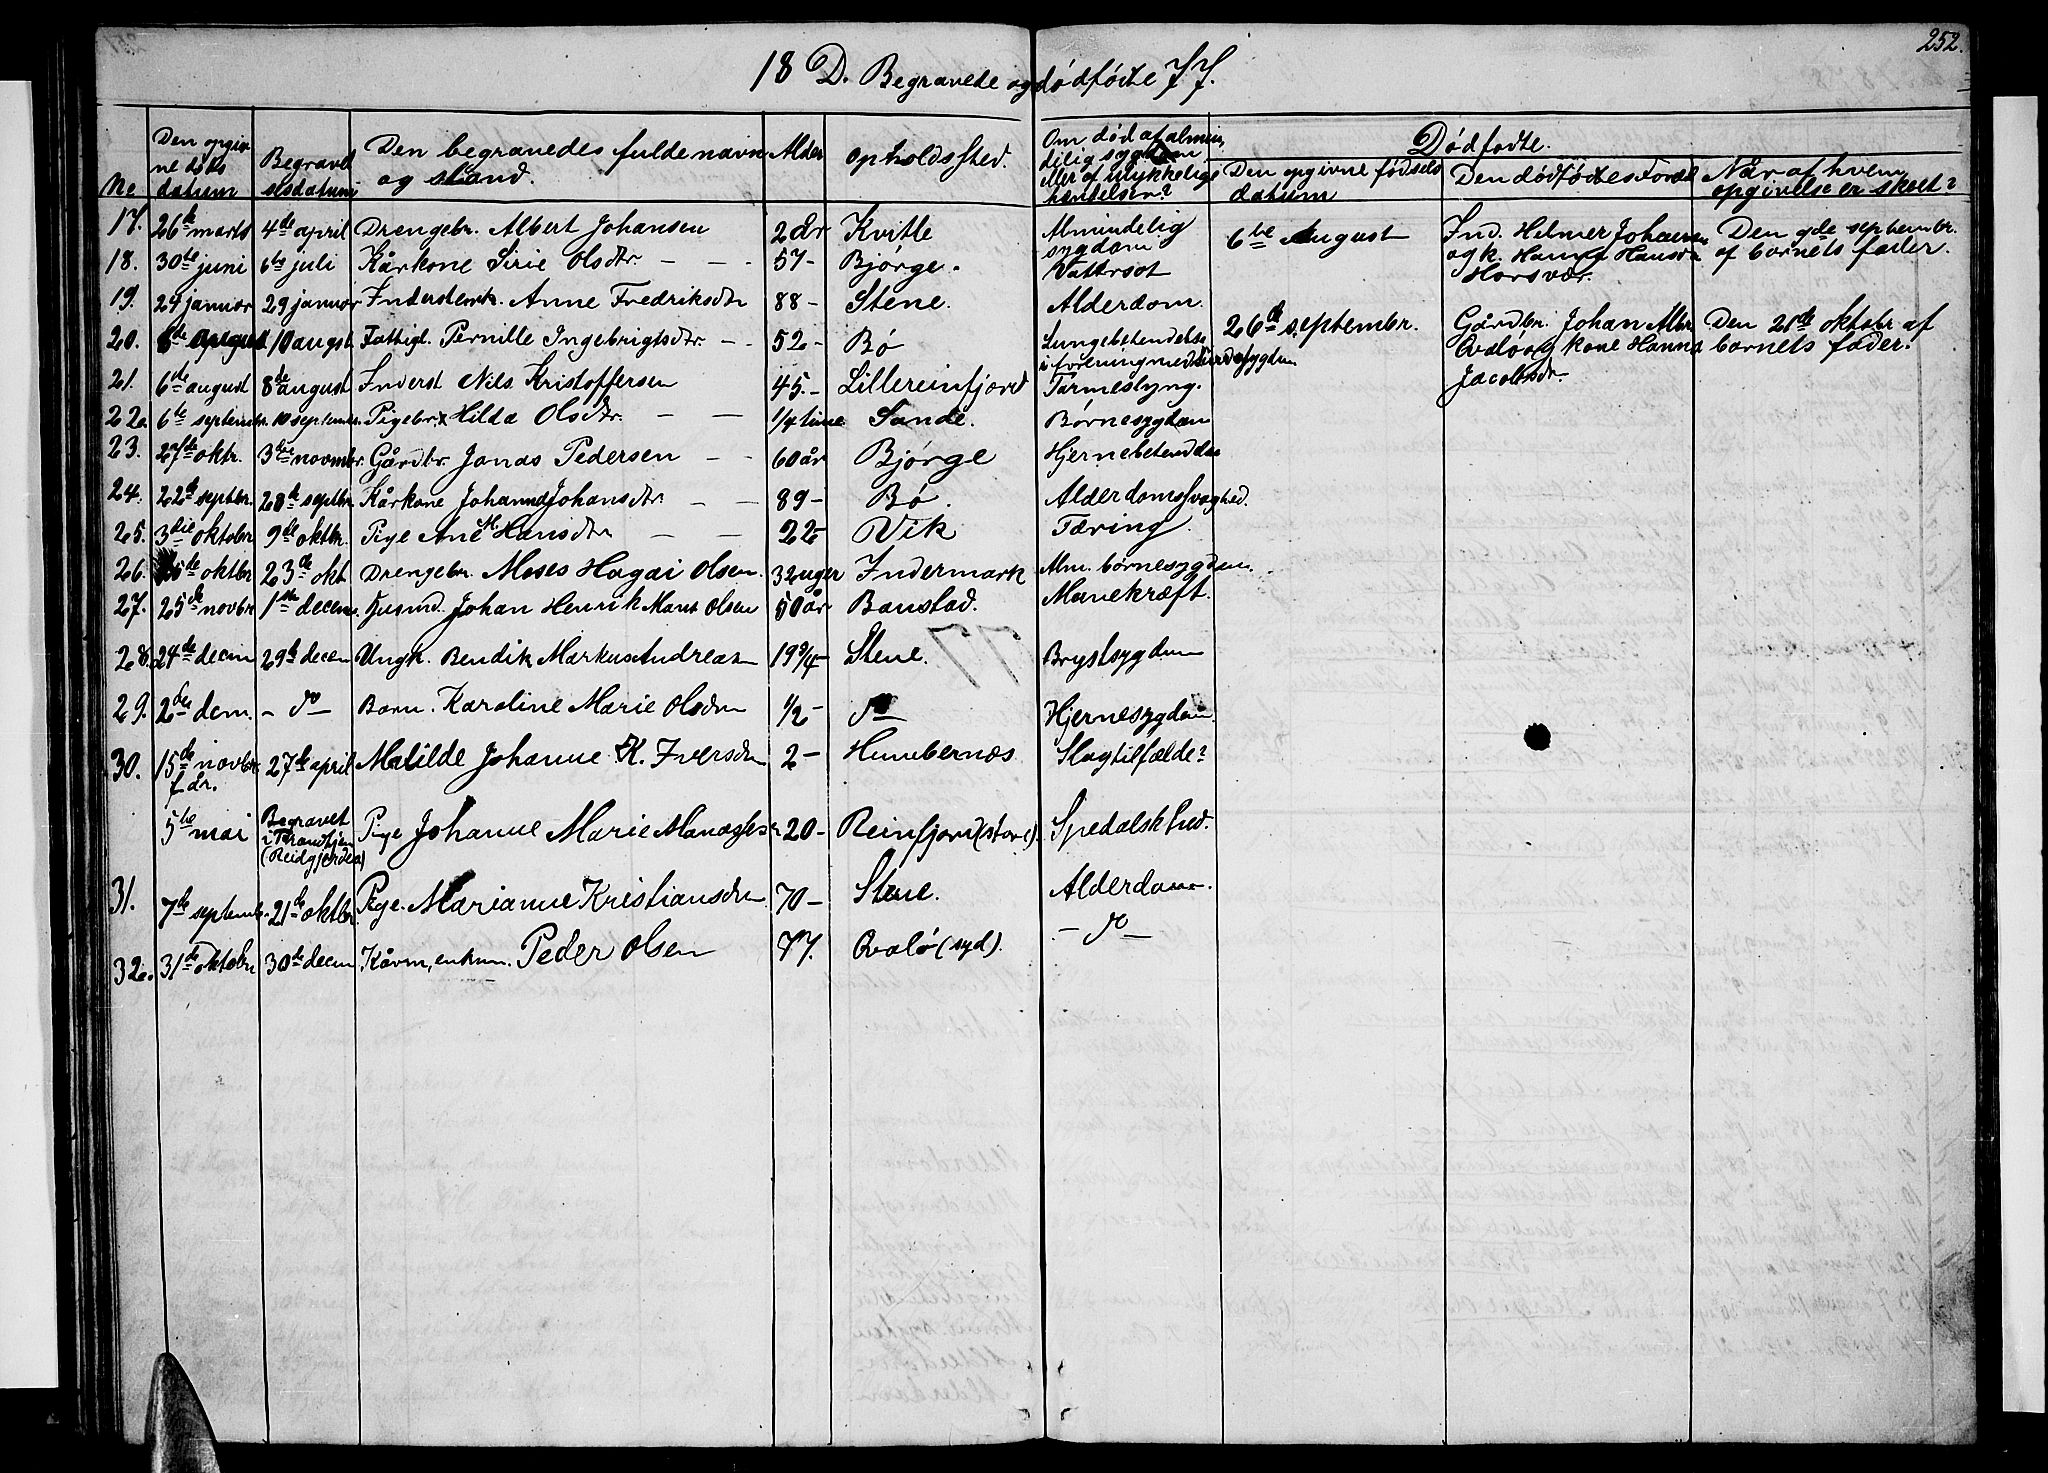 252.
18 D. Begravede og dødfødte 77.
No
Den opgivne døds datum
Begravelsesdatum
Den begravedes fulde navn og stand.
Alder
Opholdssted.
Om død af almindelig sygdom eller af ulykkelige hændelser?
Dødfødte.
Den opgivne fødselsdatum
Den dødfødtes Foræl
Når af hvem opgivelse er skeet?
17. 26de marts 4de april Drengebr. Albert Johansen 2 år Kvitle Almindelig sygdom
18. 30te juni 6te juli Kårkone Sirie Olsdtr. — — 57 - Bjørge. Vattersot
19. 24 januar 29 januar Inderstenk. Anne Fredriksdtr 88 - Stene. Alderdom.
20. august 10 augst. Fattigl. Pernille Ingebrigtsdtr. - - 52 - Bø Lungebetendelse i forening med sygdom
21. 6te august 8de august Inderst Nils Kristoffersen 45. - Lillereinfjord Tarmeslyng.
22. 6te septembr. 10 septembr. Pigebr. Hilda Olsdtr. — — 1/4 time Sande. Børnesygdom
23. 27de oktr. 3die novmbr. Gårdbr. Jonas Pedersen - - 60 år Bjørge Hjernebetendelse
24. 22de septbr. 28de septbr. Kårkone Johanna Johansdtr. - — 89 - Bø. Alderdomssvaghed.
25. 3die oktober 9de oktbr. Pige Ane M. Hansdtr — — 22 - Vik Tæring.
26. oktbr 23de okt. Drengebr. Moses Hagai Olsen. 3 uger Indermark Alm. børnesygdom.
27. 25de novbr. 1ste decem. Husmd. Johan Henrik Mant Olsen 50 år Baustad. Mavekræft.
28. 24de decm 29de decem Ungk. Bendik Markus Andreas 19 3/4 - Stene. Brystsygdom
29. 2den dem. - do - Barn. Karoline Marie Olsdtr 1/2 - do Hjernesygdom
30. 15de novbr f. år. 27de april Matilde Johanne K. Iversdtr 2 - Humebernæs Slagtilfælde?
5te mai Begravet i Trondhjem (Reidgjerdea) Pige Johanne Marie 20 - Reinfjord (store). Spedalskhed.
31. 7de septembr. 21de oktbr Pige. Marianne Kristiansdtr 70 - Stene. Alderdom.
32. 31de oktobr 30de decem Kårm, enkem. Peder Olsen 77. Qvalø (syd). - do -
6te August Ind. Helmer Johansen og k. Hanna Hansdr. Horsvær. Den 9de septembr. af barnets fader.
26de septembr. Gårdbr. Johan Albr. Qvalø og kone Hanna Jacobsdr. Den 21de oktobr af barnets fader.